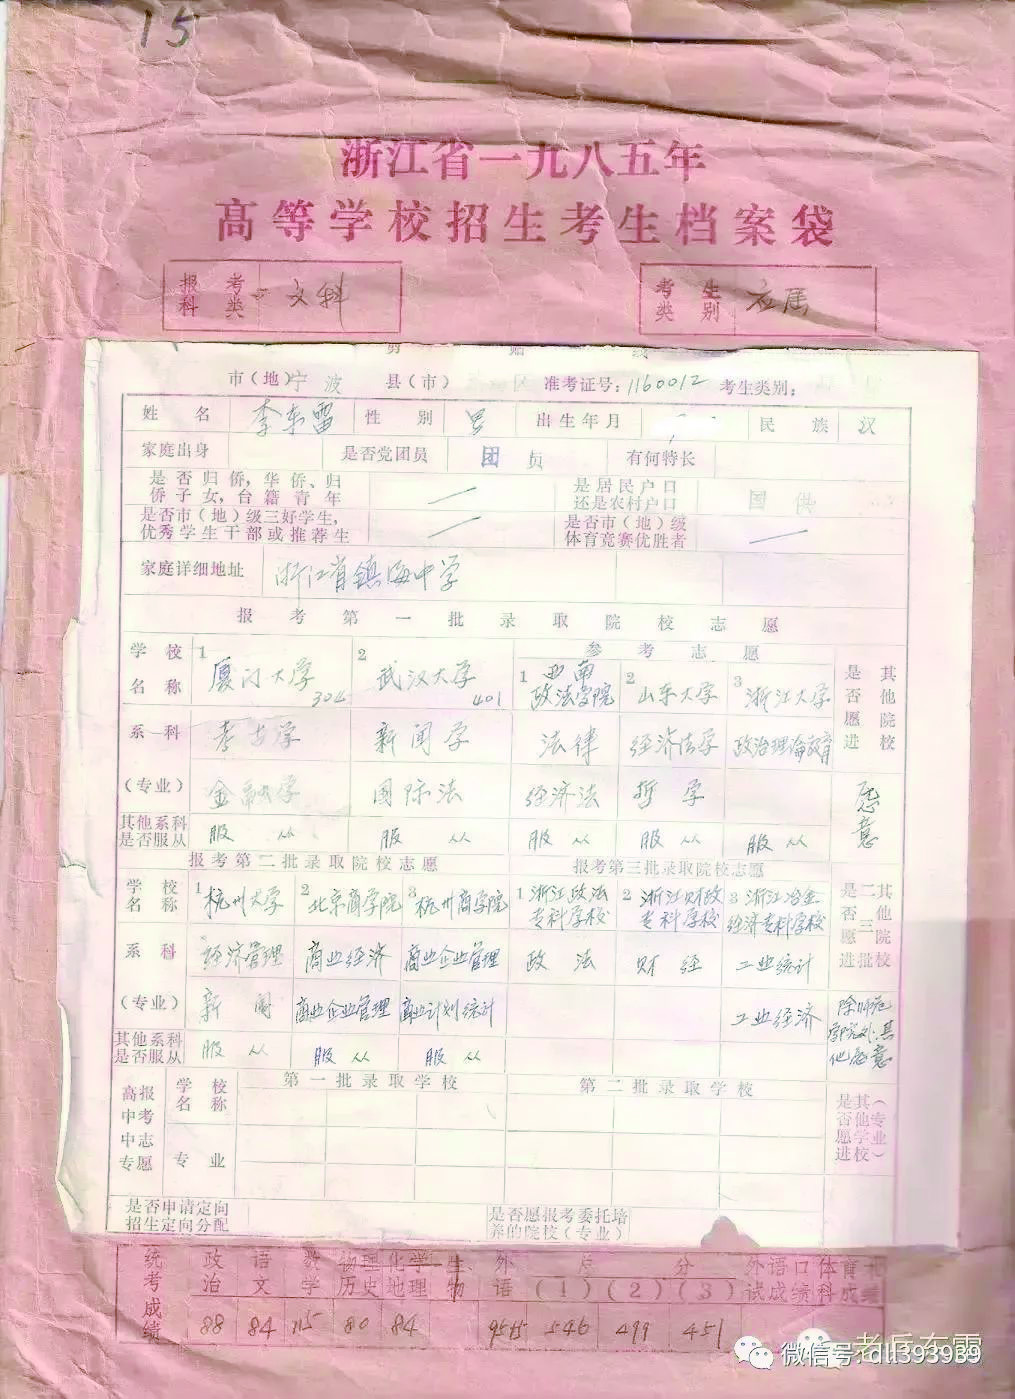 15
浙江省一九八五年
高等学校招生考生档案袋
报考科类 文科 考生类别 应届
剪 贴 线
市(地)宁波 县(市) 区 准考证号:1160012 考生类别:
姓名 李东雷 性别 男 出生年月 民族 汉
家庭出身 是否党团员 团员 有何特长
是否归侨,华侨、归侨子女,台籍青年 — 是居民户口还是农村户口 国供
是否市(地)级三好学生,优秀学生干部或推荐生 — 是否市(地)级体育竞赛优胜者 —
家庭详细地址 浙江省镇海中学
报考第一批录取院校志愿
参考志愿
学校名称 1 厦门大学 304 2 武汉大学 401 1 西南政法学院 2 山东大学 3 浙江大学 是否愿进其他院校
系科 考古学 新闻学 法律 经济法学 政治理论教育
(专业) 金融学 国际法 经济法 哲学 愿意
其他系科是否服从 服从 服从 服从 服从 服从
报考第二批录取院校志愿 报考第三批录取院校志愿
学校名称 1 杭州大学 2 北京商学院 3 杭州商学院 1 浙江政法专科学校 2 浙江财政专科学校 3 浙江冶金经济专科学校 是否愿进二三批其他院校
系科 经济管理 商业经济 商业企业管理 政法 财经 工业统计
(专业) 新闻 商业企业管理 商业计划统计 工业经济 除师范学院外其他愿意
其他系科是否服从 服从 服从 服从
高中中专 报考志愿 学校名称 第一批录取学校 第二批录取学校 是否愿进其他学校(专业)
专业
是否申请定向招生定向分配 是否愿报考委托培养的院校(专业)
统考成绩 政治 语文 数学 物理历史 化学地理 生物 外语 总分 (1) (2) (3) 外语口试成绩 体育术科成绩
88 84 115 80 84 95.5 546 499 451
老兵东雷
微信号: dll393989